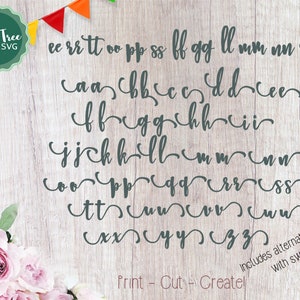 Tree
SVG
ee rr tt oo pp ss ff gg ll mm nn
aa bb cc dd ee
ff gg hh ii
jj kk ll mm nn
oo pp qq rr ss
tt uu vv uu
xx yy zz
Includes alternat
with sw
Print - Cut - Create!